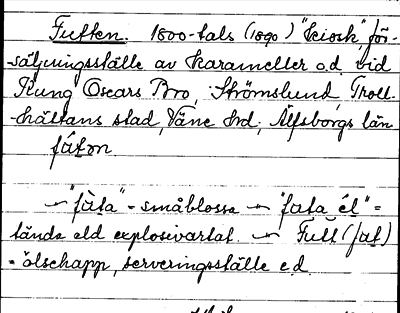 Futten. 1800-tals (1890) "kiosk", för-
säljningsställe av karameller o.d. vid
Kung Oscars Bro, Strömslund, Troll-
hättans stad, Väne hrd, Älfsborgs län
"fàta" - småblossa - "fata él" =
tända eld explosivartat. - Futt (fɑt)
= ölschapp, serveringsställe e.d.